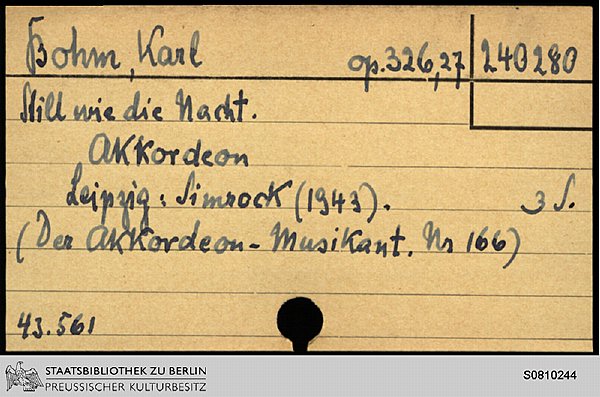 Bohm, Karl op.326,27 240280
Still wie die Nacht.
Akkordeon
Leipzig: Simrock (1943). 3 S.
(Der Akkordeon-Musikant. Nr 166)
43.561
STAATSBIBLIOTHEK ZU BERLIN
PREUSSISCHER KULTURBESITZ
S0810244